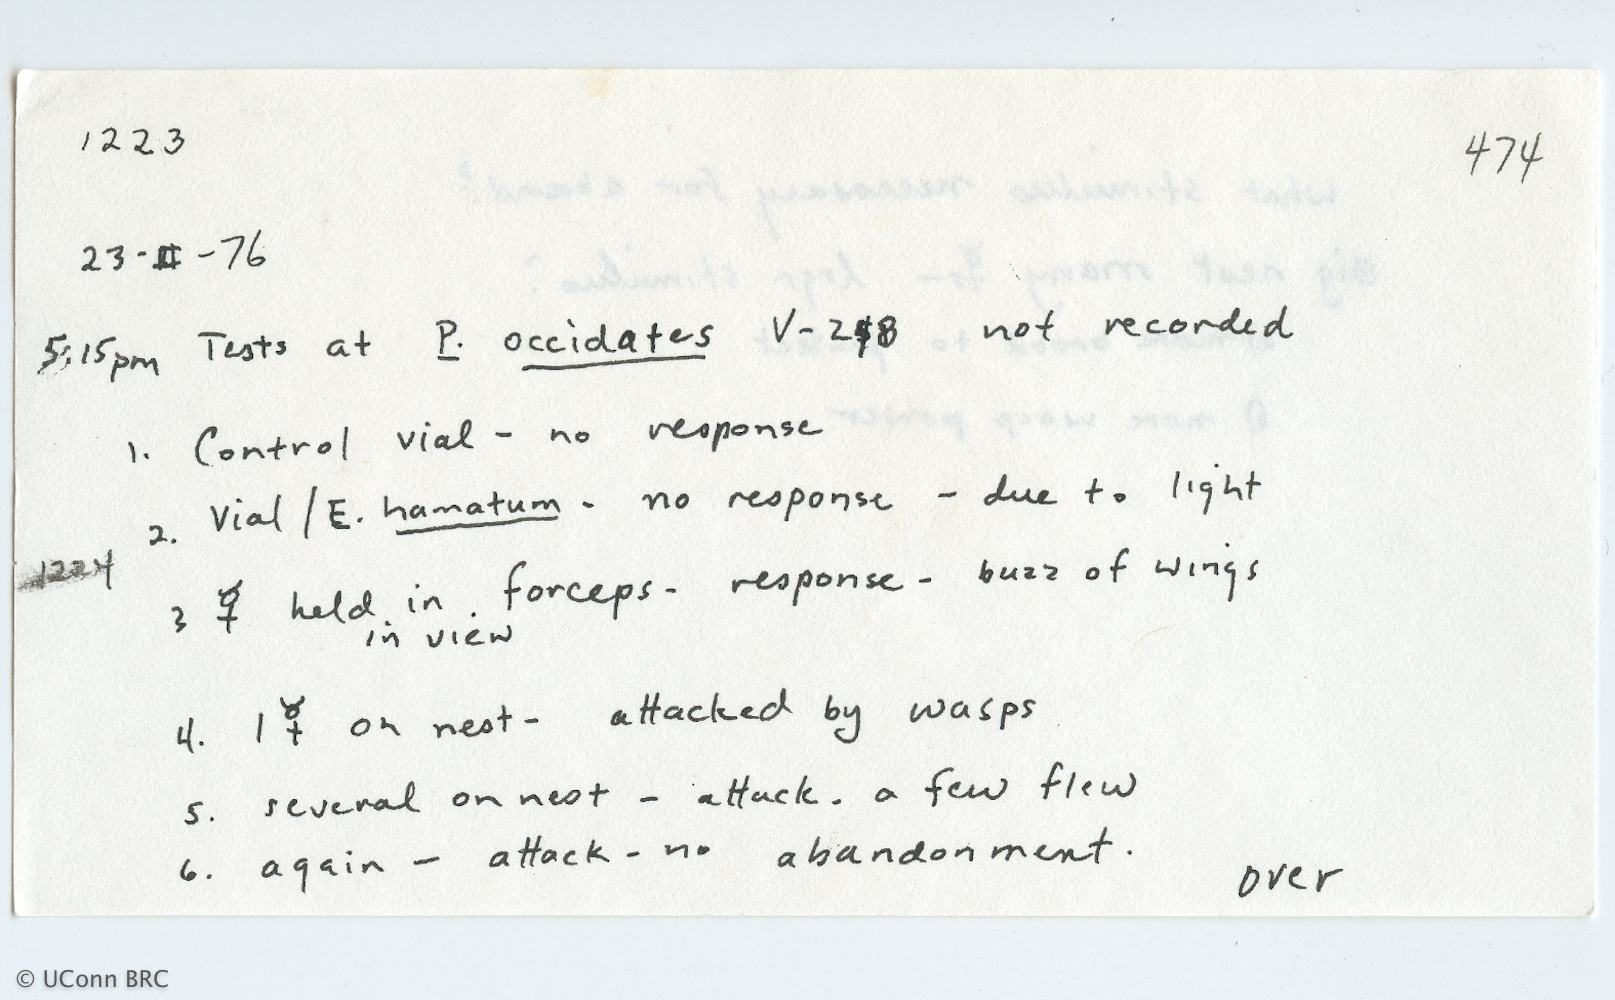 1223
474
23-II-76
5:15pm Tests at P. occidates V-248 not recorded
1. Control vial - no response
2. Vial / E. hamatum - no response - due to light
1224
3 ☿ held in forceps - response - buzz of wings
in view
4. 1 ☿ on nest - attacked by wasps
5. several on nest - attack. a few flew
6. again - attack - no abandonment.
over
© UConn BRC